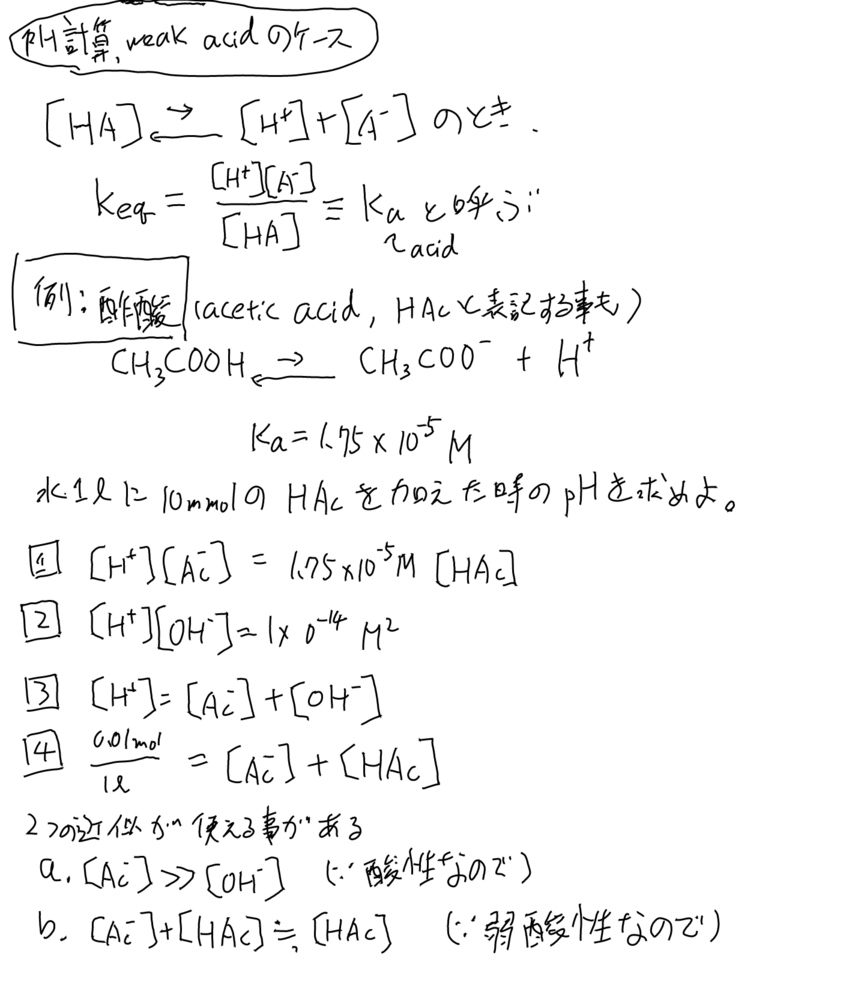 pH計算, weak acid のケース
[HA] ⇄ [H⁺]+[A⁻] のとき.
Keq = [H⁺][A⁻]/[HA] ≡ Ka と呼ぶ
acid
例: 酢酸 (acetic acid, HAcと表記する事も)
CH₃COOH ⇄ CH₃COO⁻ + H⁺
Ka = 1.75 × 10⁻⁵ M
水1ℓに 10mmolの HAcを加えた時の pHを求めよ。
1 [H⁺][Ac⁻] = 1.75×10⁻⁵M [HAc]
2 [H⁺][OH⁻] = 1x 0⁻¹⁴ M²
3 [H⁺] = [Ac⁻] + [OH⁻]
4 0.01mol/1ℓ = [Ac⁻] + [HAc]
2つの近似が使える事がある
a. [Ac⁻] ≫ [OH⁻] (∵ 酸性なので)
b. [Ac⁻]+[HAc] ≒ [HAc] (∵ 弱酸性なので)